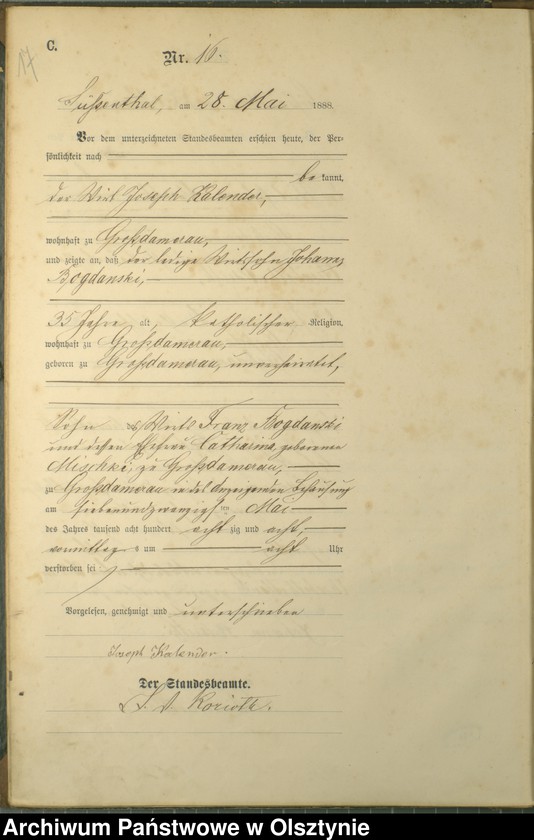 C.
17
Nr. 16.
Süssenthal, am 28. Mai 1888
Vor dem unterzeichneten Standesbeamten erschien heute, der Per-
sönlichkeit nach
be kannt,
der Wirt Joseph Kalender,
wohnhaft zu Großdamerau,
und zeigte an, daß der ledige Wirtssohn Johann
Bogdanski,
35 Jahre alt, katholischer Religion,
wohnhaft zu Großdamerau,
geboren zu Großdamerau, unverheiratet,
Sohn des Wirts Franz Bogdanski
und dessen Ehefrau Catharina, geborenen
Mischki, zu Großdamerau,
zu Großdamerau in des Anzeigenden Behausung
am siebenundzwanzigsten Mai
des Jahres tausend acht hundert acht zig und acht,
vormittags um acht Uhr
verstorben sei
Vorgelesen, genehmigt und unterschrieben
Joseph Kalender.
Der Standesbeamte.
Korioth.
Archiwum Państwowe w Olsztynie